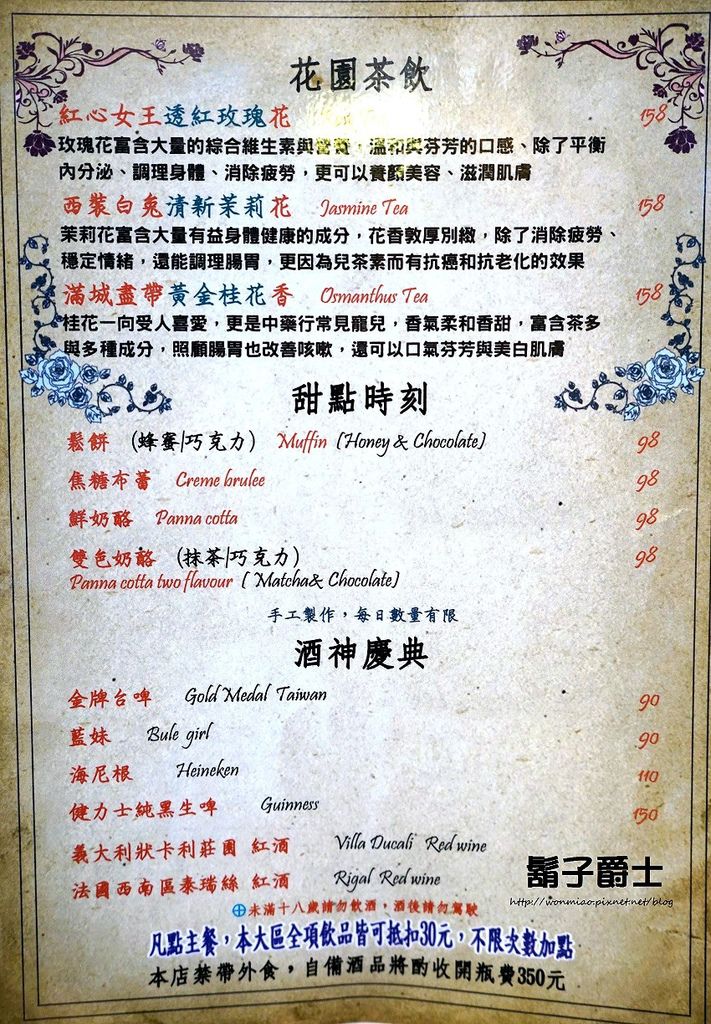 花園茶飲
紅心女王透紅玫瑰花 158
玫瑰花富含大量的綜合維生素與營養，溫和與芬芳的口感、除了平衡
內分泌、調理身體、消除疲勞，更可以養顏美容、滋潤肌膚
西裝白兔清新茉莉花 Jasmine Tea 158
茉莉花富含大量有益身體健康的成分，花香敦厚別緻，除了消除疲勞、
穩定情緒，還能調理腸胃，更因為兒茶素而有抗癌和抗老化的效果
滿城盡帶黃金桂花香 Osmanthus Tea 158
桂花一向受人喜愛，更是中藥行常見寵兒，香氣柔和香甜，富含茶多
與多種成分，照顧腸胃也改善咳嗽，還可以口氣芬芳與美白肌膚
甜點時刻
鬆餅 (蜂蜜|巧克力) Muffin (Honey & Chocolate) 98
焦糖布蕾 Creme brulee 98
鮮奶酪 Panna cotta 98
雙色奶酪 (抹茶|巧克力) 98
Panna cotta two flavour ( Matcha& Chocolate)
手工製作，每日數量有限
酒神慶典
金牌台啤 Gold Medal Taiwan 90
藍妹 Bule girl 90
海尼根 Heineken 110
健力士純黑生啤 Guinness 150
義大利狀卡利莊園 紅酒 Villa Ducali Red wine
法國西南區泰瑞絲 紅酒 Rigal Red wine
鬍子爵士
http://wonmiao.pixnet.net/blog
未滿十八歲請勿飲酒，酒後請勿駕駛
凡點主餐，本大區全項飲品皆可抵扣30元，不限次數加點
本店禁帶外食，自備酒品將酌收開瓶費350元